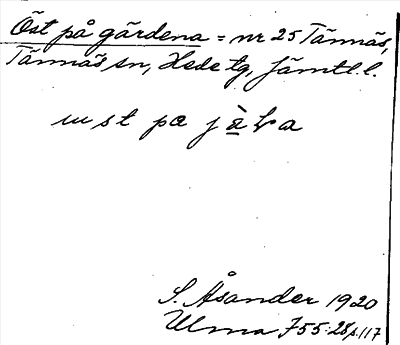 Öst på gärdena = nr 25 Tännäs,
Tännäs sn, Hede tg, Jämtl. l.
S. Åsander 1920
Ulma 755:28 s. 117